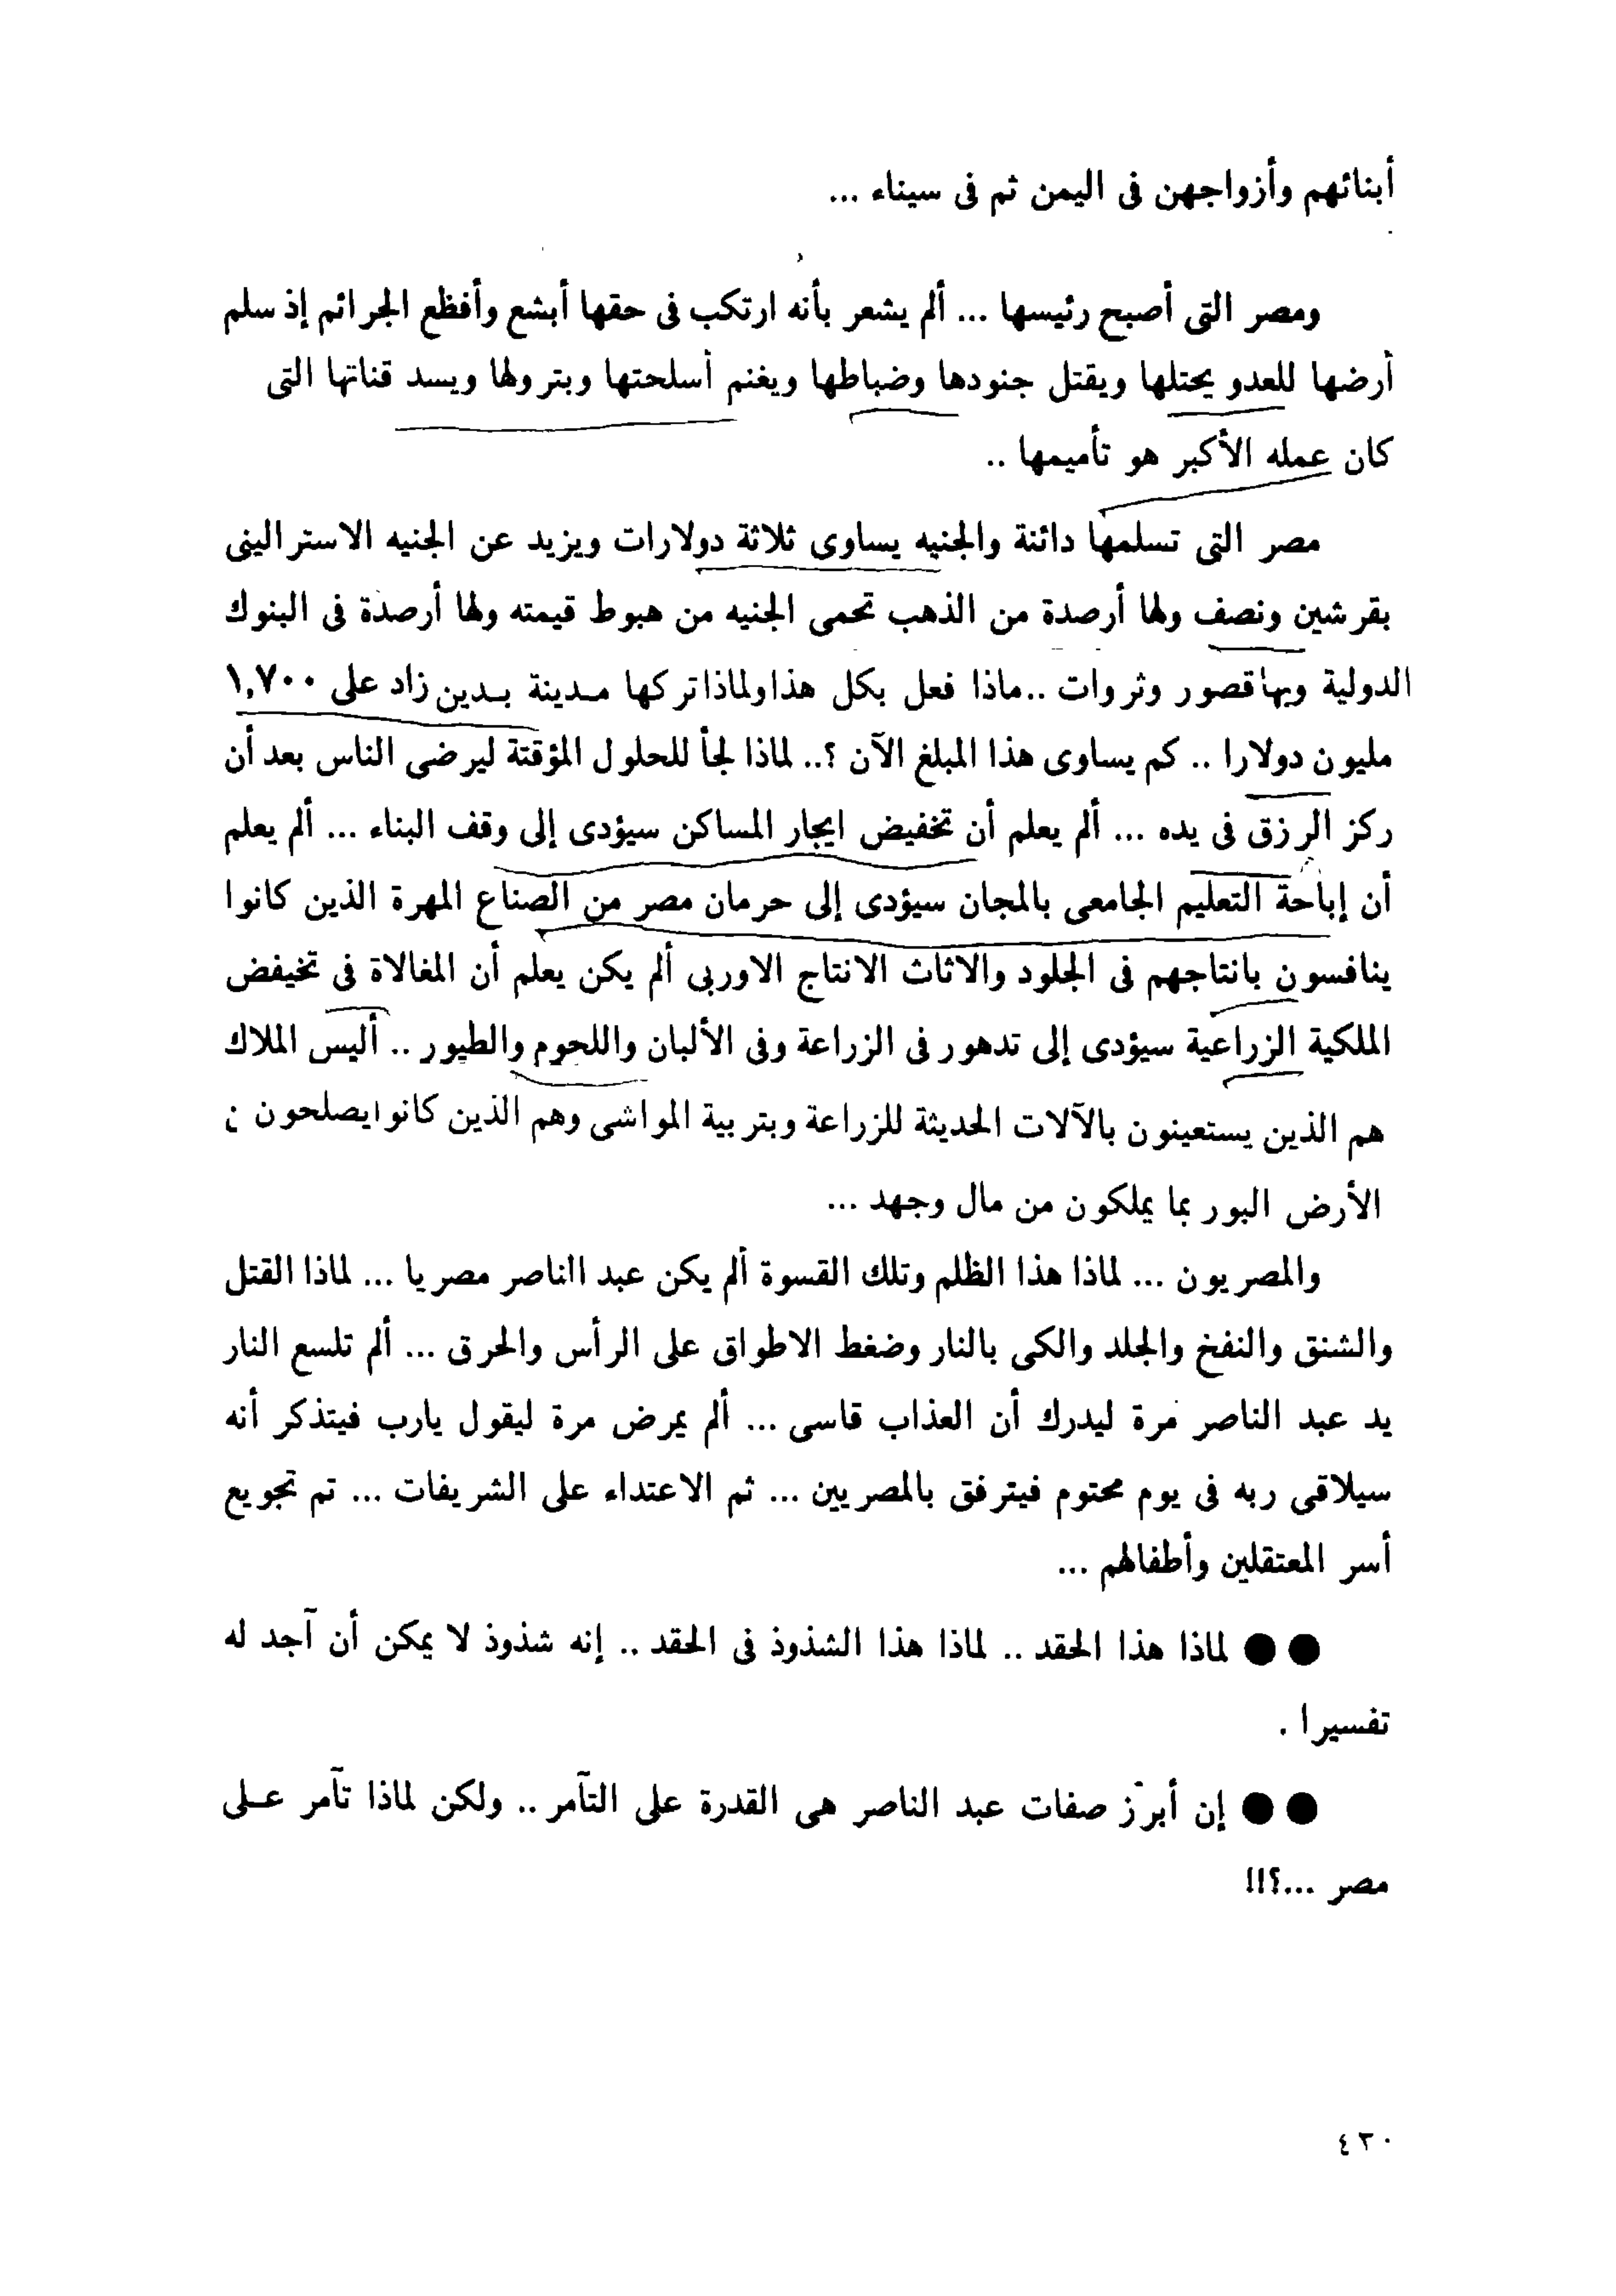 أبنائهم وأزواجهن فى اليمن ثم فى سيناء ...
ومصر التى أصبح رئيسها ... ألم يشعر بأنه ارتكب فى حقها أبشع وأفظع الجرائم إذ سلم
أرضها للعدو يحتلها ويقتل جنودها وضباطها ويغنم أسلحتها وبترولها ويسد قناتها التى
كان عمله الأكبر هو تأميمها ..
مصر التى تسلمها دائنة والجنيه يساوى ثلاثة دولارات ويزيد عن الجنيه الاسترالينى
بقرشين ونصف ولها أرصدة من الذهب تحمى الجنيه من هبوط قيمته ولها أرصدة فى البنوك
الدولية وبها قصور وثروات ..ماذا فعل بكل هذا ولماذا تركها مدينة بدين زاد على ١,٧٠٠
مليون دولارا .. كم يساوى هذا المبلغ الآن ؟.. لماذا لجأ للحلول المؤقتة ليرضى الناس بعد أن
ركز الرزق فى يده ... ألم يعلم أن تخفيض ايجار المساكن سيؤدى إلى وقف البناء ... ألم يعلم
أن إباحة التعليم الجامعى بالمجان سيؤدى إلى حرمان مصر من الصناع المهرة الذين كانوا
ينافسون بانتاجهم فى الجلود والاثاث الانتاج الاوربى ألم يكن يعلم أن المغالاة فى تخيفض
الملكية الزراعية سيؤدى إلى تدهور فى الزراعة وفى الألبان واللحوم والطيور .. أليس الملاك
هم الذين يستعينون بالآلات الحديثة للزراعة وبتربية المواشى وهم الذين كانوا يصلحون
الأرض البور بما يملكون من مال وجهد ...
والمصريون ... لماذا هذا الظلم وتلك القسوة ألم يكن عبد الناصر مصريا ... لماذا القتل
والشنق والنفخ والجلد والكى بالنار وضغط الاطواق على الرأس والحرق ... ألم تلسع النار
يد عبد الناصر مرة ليدرك أن العذاب قاسى ... ألم يمرض مرة ليقول يارب فيتذكر أنه
سيلاقى ربه فى يوم محتوم فيترفق بالمصريين ... ثم الاعتداء على الشريفات ... تم تجويع
أسر المعتقلين وأطفالهم ...
●● لماذا هذا الحقد .. لماذا هذا الشذوذ فى الحقد .. إنه شذوذ لا يمكن أن آجد له
تفسيرا .
●● إن أبرز صفات عبد الناصر هى القدرة على التآمر .. ولكن لماذا تآمر على
مصر ...؟!!
٤٣٠